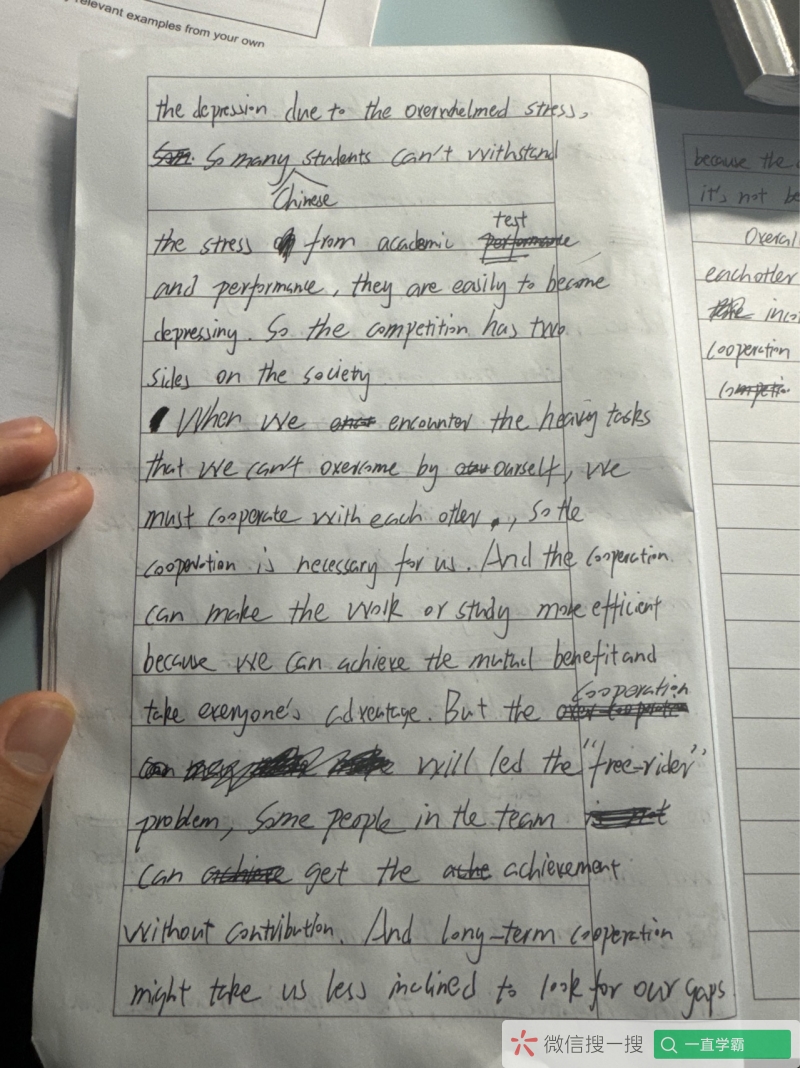 relevant examples from your own
the depression due to the overwhelmed stress,
So many Chinese students can't withstand
the stress from academic test
and performance, they are easily to become
depressing. So the competition has two
sides on the society
When we encounter the heavy tasks
that we can't overcome by ourself, we
must cooperate with each other, so the
cooperation is necessary for us. And the cooperation
can make the work or study more efficient
because we can achieve the mutual benefit and
take everyone's advantage. But the cooperation
will led the "free-rider"
problem, Some people in the team
can get the achievement
without contribution. And long-term cooperation
might take us less inclined to look for our gaps
because the
it's not be
Overall
each other
inco
cooperation
微信搜一搜
一直学霸